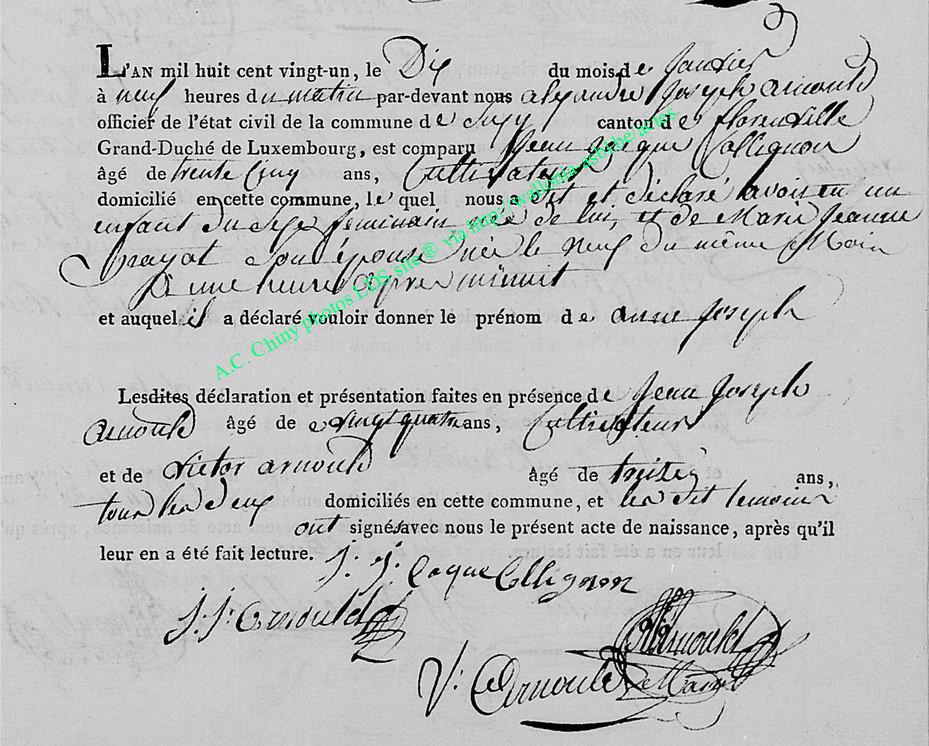 L'AN mil huit cent vingt-un, le Dix du mois de Janvier
à neuf heures du matin par-devant nous alexandre Joseph arnould
officier de l'état civil de la commune de canton de florenville
Grand-Duché de Luxembourg, est comparu Jean Collignon
âgé de trente Cinq ans, Cultivateur
domicilié en cette commune, le quel nous a dit et déclaré avoir eu un
enfant du Sexe feminin née de lui, et de Marie Jeanne
Son épouse née le neuf du même Mois
à une heure après minuit
et auquel il a déclaré vouloir donner le prénom de anne Joseph
Lesdites déclaration et présentation faites en présence de Jean Joseph
arnould âgé de vingt quatre ans, Cultivateur
et de victor arnould âgé de ans,
tous les deux domiciliés en cette commune, et les dit temoins
ont signés avec nous le présent acte de naissance, après qu'il
leur en a été fait lecture.
J. J. Collignon
J. J. Arnould
Arnould
V. Arnould
A.C. Chiny photos LDS site® via http://wallonia-asbl.be/actes